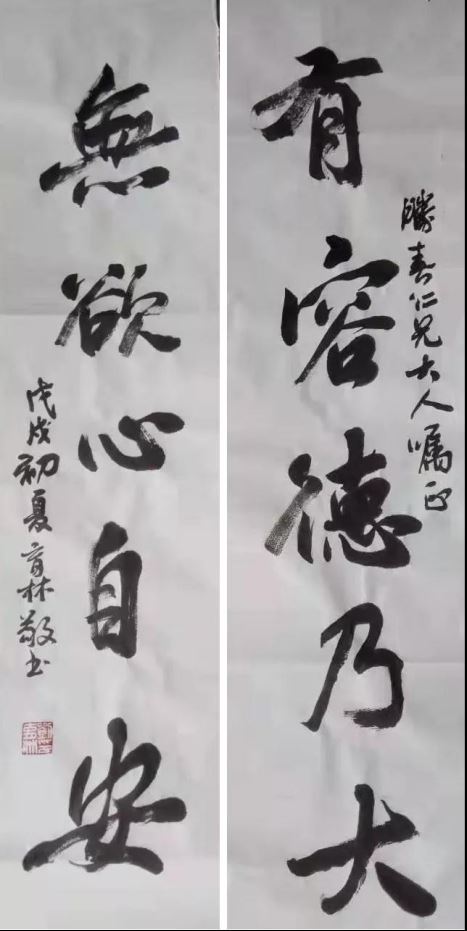 有容德乃大
勝春仁兄大人嘱正
無欲心自安
戊戌初夏育林敬书